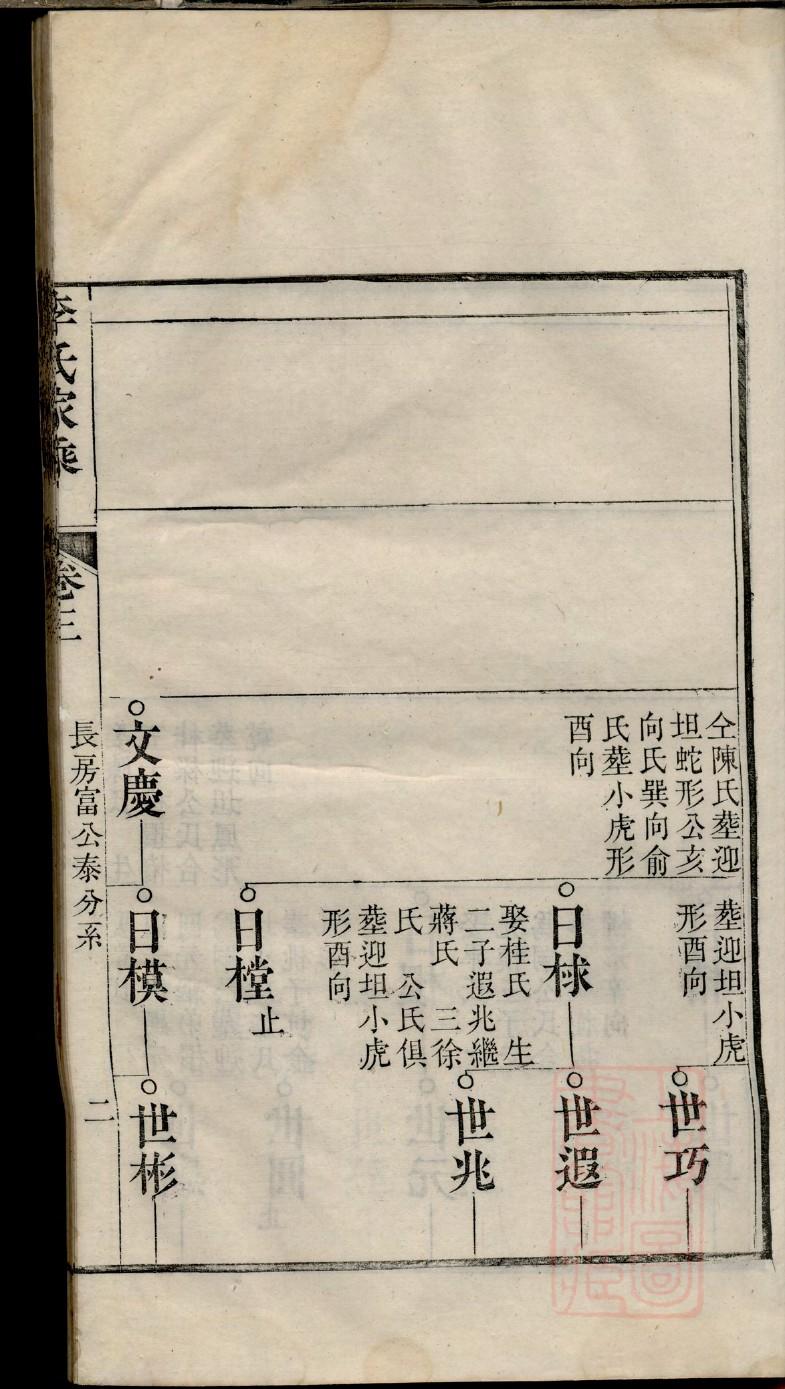 仝陳氏塟迎
坦蛇形公亥
向氏巽向俞
氏塟小虎形
酉向
文慶
塟迎坦小虎
形酉向
日梂
娶桂氏　生
二子遐兆繼
蔣氏　三徐
氏　公氏俱
塟迎坦小虎
形酉向
日樘
止
日模
世巧
世遐
世兆
世彬
李氏家乘
卷三
長房富公泰分系
二